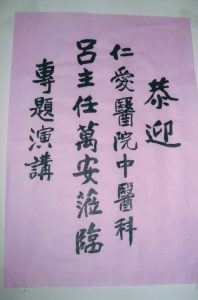 恭迎
仁愛醫院中醫科
呂主任萬安蒞臨
專題演講